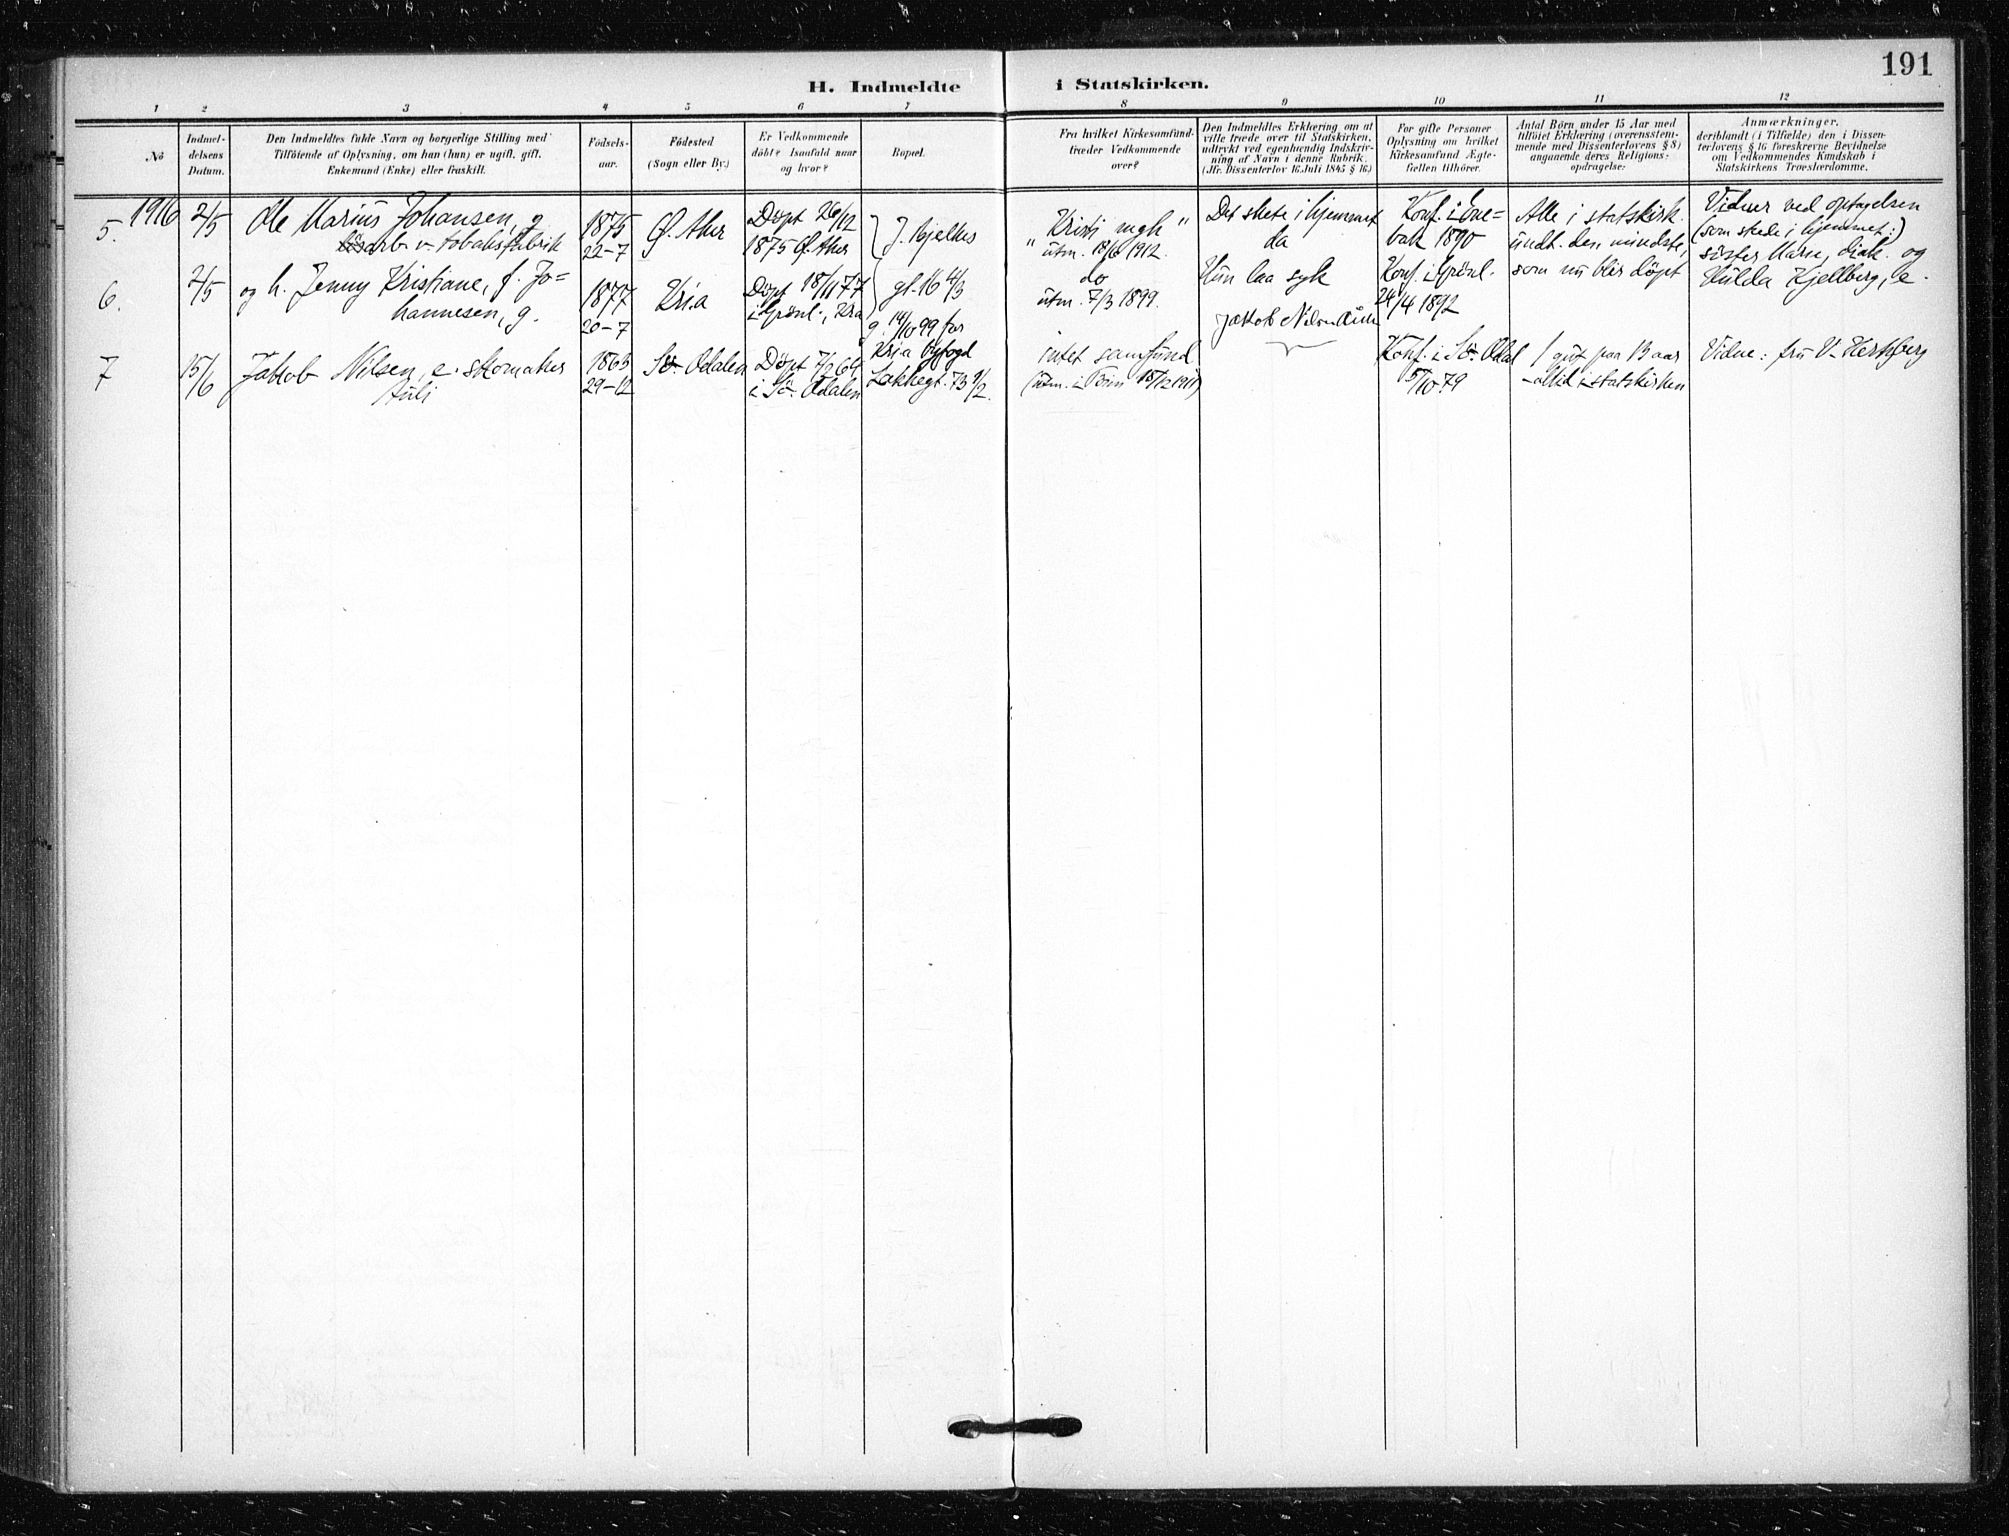 191
H. Indmeldte i Statskirken.
1 2 3 4 5 6 7 8 9 10 11 12
No
Indmel-
delsens
Datum.
Den Indmeldtes fulde Navn og borgerlige Stilling med
Tilföiende af Oplysning, om han (hun) er ugift, gift,
Enkemand (Enke) eller fraskilt.
Födsels-
aar.
Födested
(Sogn eller By.)
Er Vedkommende
döbt? Isaafald naar
og hvor?
Bopæl.
Fra hvilket Kirkesamfund
træder Vedkommende
over?
Den Indmeldtes Erklæring om at
ville træde over til Statskirken,
udtrykt ved egenhændig Indskriv-
ning af Navn i denne Rubrik.
(Jfr. Dissenterlov 16 Juli 1845 § 16.)
For gifte Personer
Oplysning om hvilket
Kirkesamfund Ægte-
fællen tilhörer.
Antal Börn under 15 Aar med
tilföiet Erklæring (overensstem-
mende med Dissenterlovens § 8)
angaaende deres Religions-
opdragelse:
Anmærkninger,
deriblandt (i Tilfælde) den i Dissen-
terlovens § 16 foreskrevne Bevidnelse
om Vedkommendes Kundskab i
Statskirkens Troeslærdomme.
1916
5.
2/5
Ole Marius Johansen, g.
arb. v. tobaksfabrik
1875
22-7
Ø. Aker
Döpt 26/12
1875 Ø. Aker
J. Bjelkes
"Kristi mgh"
utm. 1912.
Det skete i hjemmet
da
Konf. i Ene=
bak 1890
Alle i statskirk.
undt. den mindste,
Vidner ved optagelsen
(som skede i hjemmet:)
söster Marie, diak. og
6.
2/5
og h. Jenny Kristiane, f. Jo=
hannesen, g.
1877
20-7
Kria
Döpt 18/11 77
i Grönl., Kra
gt. 16 4/3
g. 14/10 99 for
Kria byfogd
do
utm. 7/3 1899.
Hun laa syk
Konf. i Grönl.
24/4 1892
som nu blir döpt
Hulda Kjellberg, e.
7
15/6
Jakob Nilsen, e. skomaker
Auli
1863
29-12
Sö. Odalen
Döpt 7/2 64
i Sö. Odalen
Lakkegt. 73
intet samfund
(utm. i 15/12 1911)
Jakob Nilsen Auli
Konf. i Sö. Odal
5/10 79
1 gut paa 13 aar
- altid i statskirken
Vidne: fru V. Hertzberg